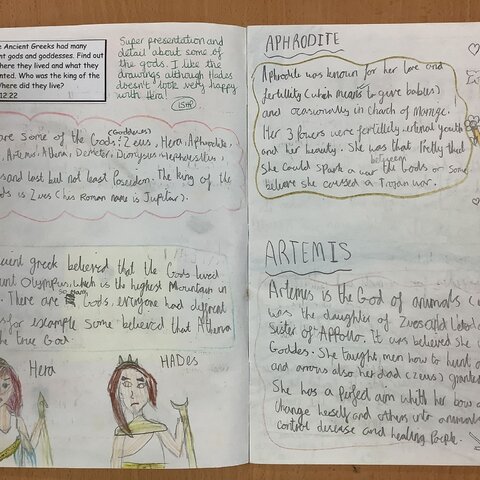 e Ancient Greeks had many
nt gods and goddesses. Find out
here they lived and what they
nted. Who was the king of the
Where did they live?
12.22
Super presentation and
detail about some of
the gods. I like the
drawings although Hades
doesn't look very happy
with Hera!
1SHP
(Goddeses)
are some of the Gods: Zeus, Hera, Aphrodite,
, Artemis, Athena, Demeter, Dionysus,
and last but not least Poseidon. The king of the
ds is Zeus (his Roman name is Jupitar).
cient greek believed that the Gods lived
unt Olympus, which is the highest Mountain in
so many
. There are Gods, everyone had different
for escample some believed that Athena
he true God.
Hera
HADes
APHRODITE
Aphrodite was known for her love and
fertility (which means to give babies)
and ocasionally in charch of Marrige.
Her 3 powers were fertility, eternal youth
and her beauty. She was that Pretty that
between
She could spark a war the Gods or some
believe she caused a Trojan war.
ARTEMIS
Artemis is the God of animals
was the daughter of Zues and
sister of Appollo. It was believed she
Goddes. She taught men how to hunt
and arrows also her dad (Zeus) granted
She has a perfect aim whith her bow
change herself and others into animals
control disease and healing People.